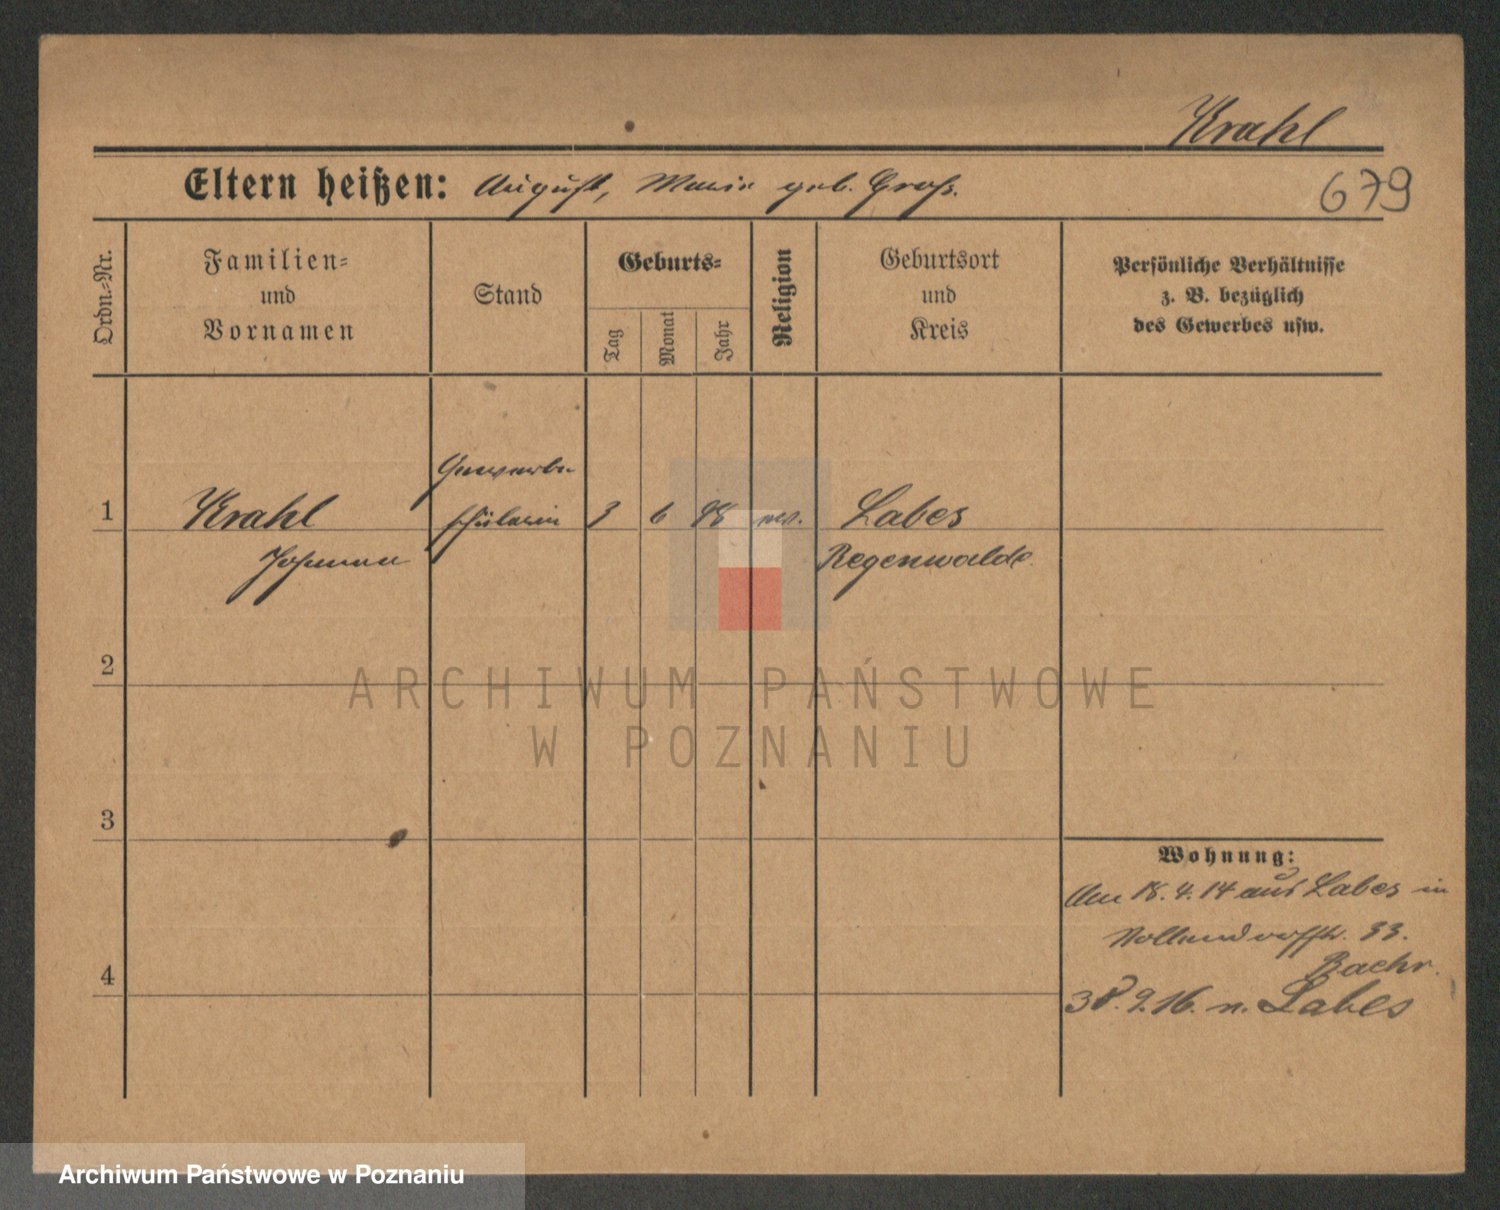 Krahl
Eltern heißen: August, Marie geb. Groß.
679
Ordn.-Nr.
Familien-
und
Vornamen
Stand
Geburts-
Tag
Monat
Jahr
Religion
Geburtsort
und
Kreis
Persönliche Verhältnisse
z. B. bezüglich
des Gewerbes usw.
Gewerbe
1 Krahl schülerin 3 6 98 ev. Labes
Regenwalde
2
3
Wohnung:
Am 18.4.14 aus Labes in
33.
4
Labes
ARCHIWUM PAŃSTWOWE
W POZNANIU
Archiwum Państwowe w Poznaniu